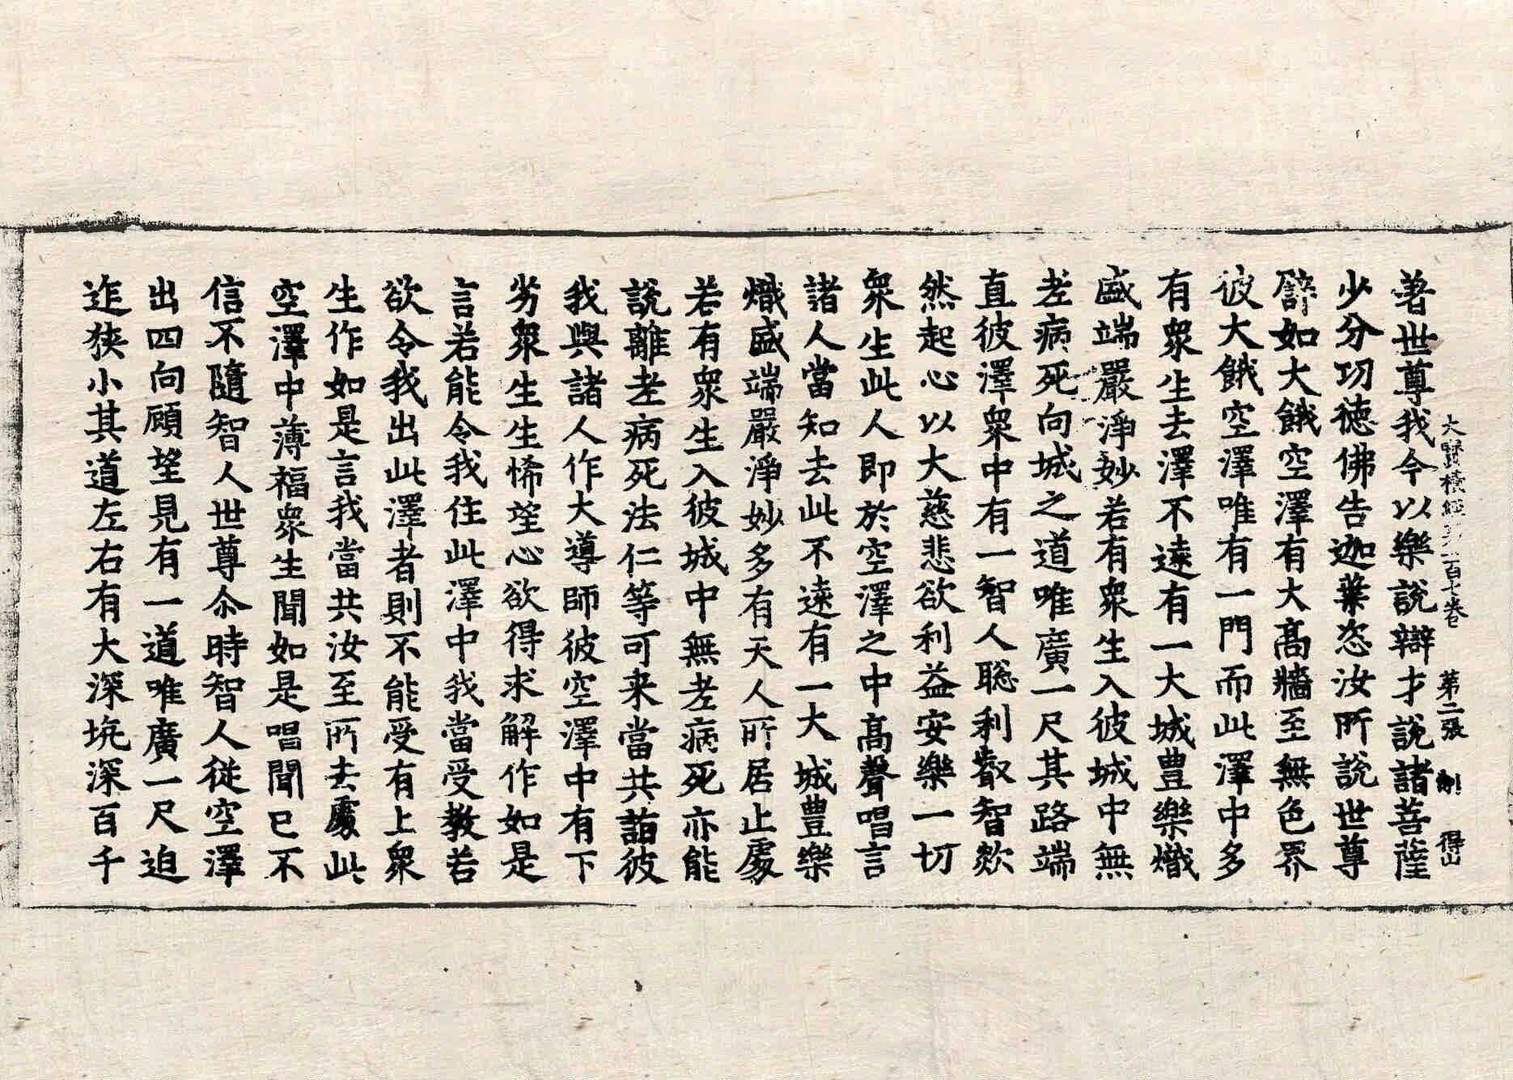 大寶積經第一百七卷 第二張 制 得山
著世尊我今以樂說辯才說諸菩薩
少分功德佛告迦葉恣汝所說世尊
譬如大餓空澤有大高牆至無色界
彼大餓空澤唯有一門而此澤中多
有衆生去澤不遠有一大城豊樂熾
盛端嚴淨妙若有衆生入彼城中無
老病死向城之道唯廣一尺其路端
直彼澤衆中有一智人聡利叡智欻
然起心以大慈悲欲利益安樂一切
衆生此人即於空澤之中高聲唱言
諸人當知去此不遠有一大城豊樂
熾盛端嚴淨妙多有天人所居止處
若有衆生入彼城中無老病死亦能
說離老病死法仁等可来當共詣彼
我與諸人作大導師彼空澤中有下
劣衆生生悕望心欲得求解作如是
言若能令我住此澤中我當受教若
欲令我出此澤者則不能受有上衆
生作如是言我當共汝至所去處此
空澤中薄福衆生聞如是唱聞已不
信不隨智人世尊尒時智人從空澤
出四向顧望見有一道唯廣一尺迫
迮狹小其道左右有大深坑深百千